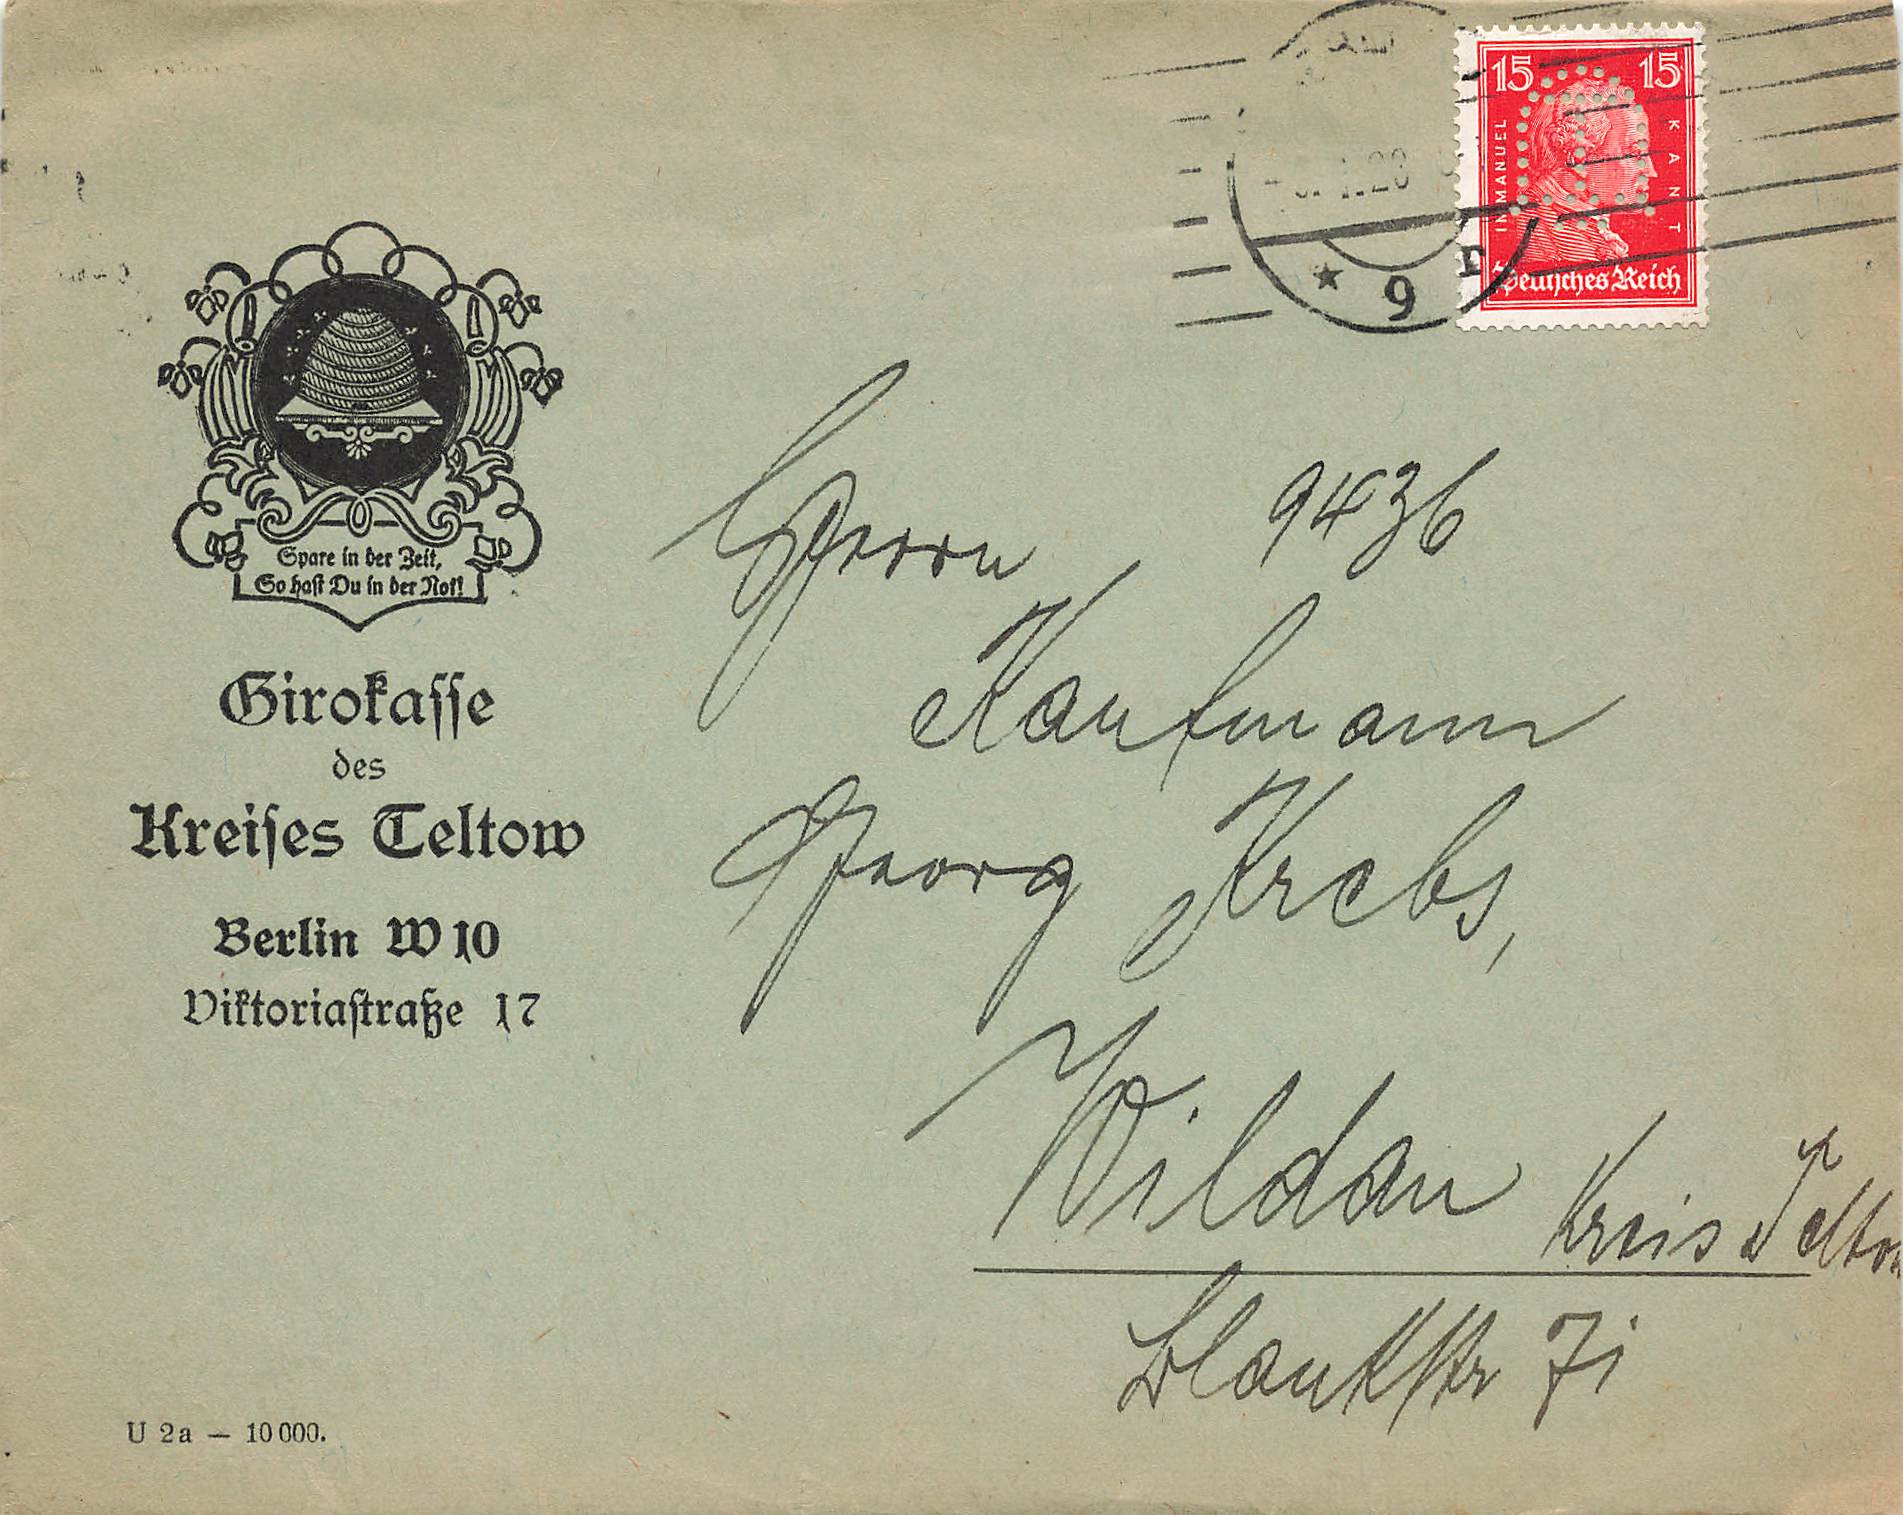 15 15
IMMANUEL KANT
Deutsches Reich
* 9 n
Spare in der Zeit,
So hast Du in der Not!
Girokasse
des
Kreises Teltow
Berlin W 10
Viktoriastraße 17
9436
Herrn
Kaufmann
Georg Krebs,
Wildau Kreis Teltow
U 2a — 10 000.